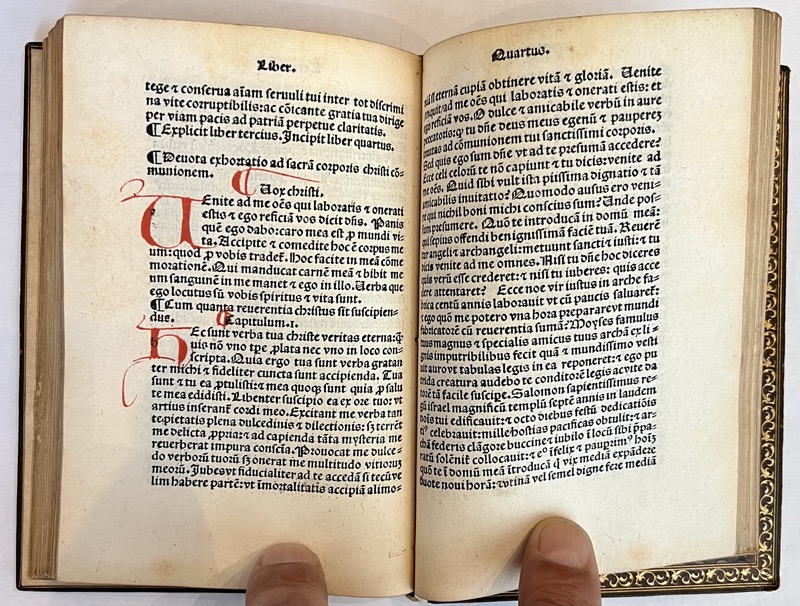 Liber.
tege ⁊ conserua aīam seruuli tui inter tot discrimi
na vite corruptibilis:ac cōicante gratia tua dirige
per viam pacis ad patriā perpetue claritatis.
¶Explicit liber tercius. Jncipit liber quartus.
¶Deuota exhortatio ad sacrā corporis christi cō=
munionem.
¶ Uox christi.
UEnite ad me oēs qui laboratis ⁊ onerati
estis ⁊ ego reficiā vos dicit dñs. Panis
quē ego dabo:caro mea est ꝓ mundi vi=
ta. Accipite ⁊ comedite hoc ē corpus me
um:quod ꝓ vobis tradet᷑. Hoc facite in meā cōme
morationē. Qui manducat carnē meā ⁊ bibit me
um sanguinē in me manet ⁊ ego in illo. Uerba que
ego locutus sū vobis spiritus ⁊ vita sunt.
¶Cum quanta reuerentia christus sit suscipien=
dus. ¶Capitulum.ı.
HEc sunt verba tua christe veritas eterna:q̄
uis nō vno tp̄e ꝓlata nec vno in loco con=
scripta. Quia ergo tua sunt verba gratan
ter michi ⁊ fideliter cuncta sunt accipienda. Tua
sunt ⁊ tu ea ꝓtulisti:⁊ mea quoqꝫ sunt quia ꝓ salu
te mea edidisti. Libenter suscipio ea ex ore tuo: vt
artius inserant᷑ cordi meo. Excitant me verba tan
te pietatis plena dulcedinis ⁊ dilectionis: sꝫ terrēt
me delicta ꝓpria:⁊ ad capienda tāta mysteria me
reuerberat impura consciā. Prouocat me dulce=
do verborū tuorū sꝫ onerat me multitudo vitiorū
meorū. Jubes vt fiducialiter ad te accedā si tecū ve
lim habere partē:vt īmortalitatis accipiā alimo=
Quartus.
niā si eternā cupiā obtinere vitā ⁊ gloriā. Uenite
inquit ad me oēs qui laboratis ⁊ onerati estis: et
ego reficiā vos. O dulce ⁊ amicabile verbū in aure
peccatoris:ꝙ tu dñe deus meus egenū ⁊ pauperē
inuitas ad cōmunionem tui sanctissimi corporis.
Sed quis ego sum dñe vt ad te presumā accedere?
Ecce celi celorū te nō capiunt ⁊ tu dicis:venite ad
me oēs. Quid sibi vult ista pijssima dignatio ⁊ tā
amicabilis inuitatio? Quomodo ausus ero veni=
re qui nichil boni michi conscius sum? Unde pos=
sum presumere. Quō te introducā in domū meā:
qui sepius offendi benignissimā faciē tuā. Reuerē
tur angeli ⁊ archangeli:metuunt sancti ⁊ iusti:⁊ tu
dicis venite ad me omnes. Nisi tu dñe hoc diceres
quis verū esse crederet:⁊ nisi tu iuberes: quis acce
dere attentaret? Ecce noe vir iustus in arche fa=
brica centū annis laborauit vt cū paucis saluaret᷑:
⁊ ego quō me potero vna hora preparare vt mundi
fabricatorē cū reuerentia sumā? Moyses famulus
tuus magnus ⁊ specialis amicus tuus archā ex li=
gnis imputribilibus fecit quā ⁊ mundissimo vesti
uit auro vt tabulas legis in ea reponeret:⁊ ego pu
trida creatura audebo te conditorē legis ac vite da
torē tā facile suscipe. Salomon sapientissimus re=
gū israel magnificū templū septē annis in laudem
nois tui edificauit:⁊ octo diebus festū dedicatiōis
eiꝰ celebrauit:mille hostias pacificas obtulit:⁊ ar=
chā federis clāgore buccine ⁊ iubilo ī locū sibi p̄pa=
ratū solēnit᷑ collocauit:⁊ eᵒ īfelix ⁊ pauprimꝰ hoīꝫ
quō te ī domū meā ītroducā q̄ vix mediā expādere
duote noui horā:⁊ vtinā vel semel digne fere mediā